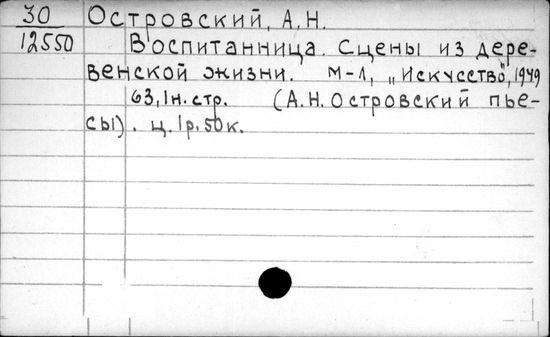 30 Островский, А.Н.
12550 Воспитанница. Сцены из дере-
венской жизни. М-Л, „Искусство", 1949
63, 1н. стр. (А.Н. Островский пье-
сы). ц. 1р. 50к.